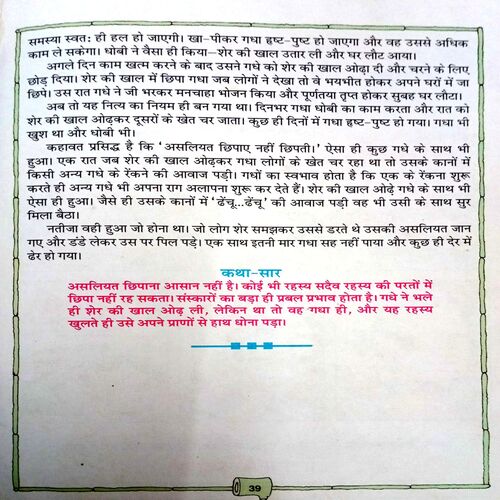 समस्या स्वत: ही हल हो जाएगी। खा-पीकर गधा हृष्ट-पुष्ट हो जाएगा और वह उससे अधिक
काम ले सकेगा। धोबी ने वैसा ही किया—शेर की खाल उतार ली और घर लौट आया।
अगले दिन काम खत्म करने के बाद उसने गधे को शेर की खाल ओढ़ा दी और चरने के लिए
छोड़ दिया। शेर की खाल में छिपा गधा जब लोगों ने देखा तो वे भयभीत होकर अपने घरों में जा
छिपे। उस रात गधे ने जी भरकर मनचाहा भोजन किया और पूर्णतया तृप्त होकर सुबह घर लौटा।
अब तो यह नित्य का नियम ही बन गया था। दिनभर गधा धोबी का काम करता और रात को
शेर की खाल ओढ़कर दूसरों के खेत चर जाता। कुछ ही दिनों में गधा हृष्ट-पुष्ट हो गया। गधा भी
खुश था और धोबी भी।
कहावत प्रसिद्ध है कि ‘असलियत छिपाए नहीं छिपती।’ ऐसा ही कुछ गधे के साथ भी
हुआ। एक रात जब शेर की खाल ओढ़कर गधा लोगों के खेत चर रहा था तो उसके कानों में
किसी अन्य गधे के रेंकने की आवाज पड़ी। गधों का स्वभाव होता है कि एक के रेंकना शुरू
करते ही अन्य गधे भी अपना राग अलापना शुरू कर देते हैं। शेर की खाल ओढ़े गधे के साथ भी
ऐसा ही हुआ। जैसे ही उसके कानों में ‘ढेंचू...ढेंचू’ की आवाज पड़ी वह भी उसी के साथ सुर
मिला बैठा।
नतीजा वही हुआ जो होना था। जो लोग शेर समझकर उससे डरते थे उसकी असलियत जान
गए और डंडे लेकर उस पर पिल पड़े। एक साथ इतनी मार गधा सह नहीं पाया और कुछ ही देर में
ढेर हो गया।
कथा-सार
असलियत छिपाना आसान नहीं है। कोई भी रहस्य सदैव रहस्य की परतों में
छिपा नहीं रह सकता। संस्कारों का बड़ा ही प्रबल प्रभाव होता है। गधे ने भले
ही शेर की खाल ओढ़ ली, लेकिन था तो वह गधा ही, और यह रहस्य
खुलते ही उसे अपने प्राणों से हाथ धोना पड़ा।
39